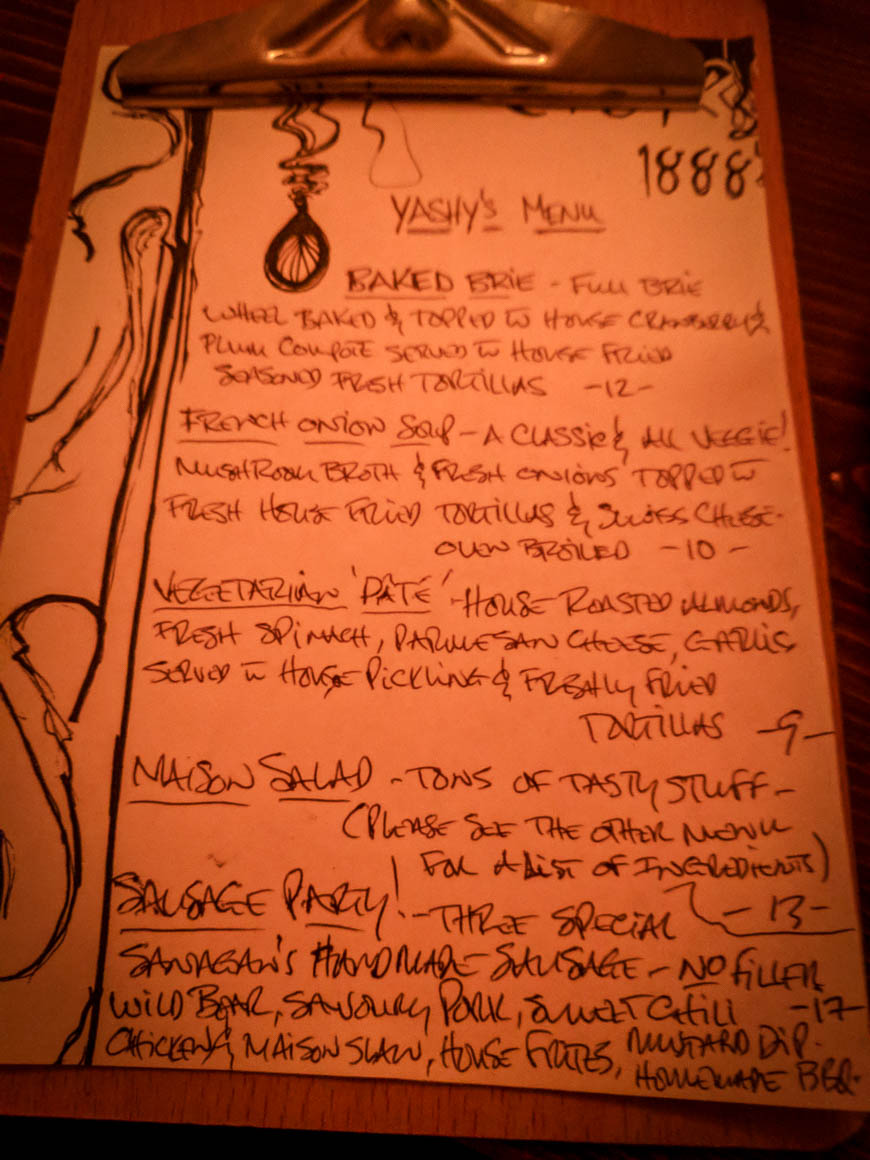 1888
YASHY'S MENU
BAKED BRIE - FULL BRIE
WHEEL BAKED & TOPPED W HOUSE CRANBERRY &
PLUM COMPOTE SERVED W HOUSE FRIED
SEASONED FRESH TORTILLAS -12-
FRENCH ONION SOUP - A CLASSIC & ALL VEGGIE!
MUSHROOM BROTH & FRESH ONIONS TOPPED W
FRESH HOUSE FRIED TORTILLAS & SWISS CHEESE.
OVEN BROILED -10-
VEGETARIAN 'PÂTÉ' - HOUSE ROASTED ALMONDS,
FRESH SPINACH, PARMESAN CHEESE, GARLIC
SERVED W HOUSE PICKLING & FRESHLY FRIED
TORTILLAS -9-
MAISON SALAD - TONS OF TASTY STUFF -
(PLEASE SEE THE OTHER MENU
FOR A LIST OF INGREDIENTS)
-13-
SAUSAGE PARTY! - THREE SPECIAL
SANAGAN'S HANDMADE SAUSAGE - NO FILLER
WILD BOAR, SAVOURY PORK, SWEET CHILI -17-
CHICKEN & MAISON SLAW, HOUSE FRITES, MUSTARD DIP.
HOMEMADE BBQ.